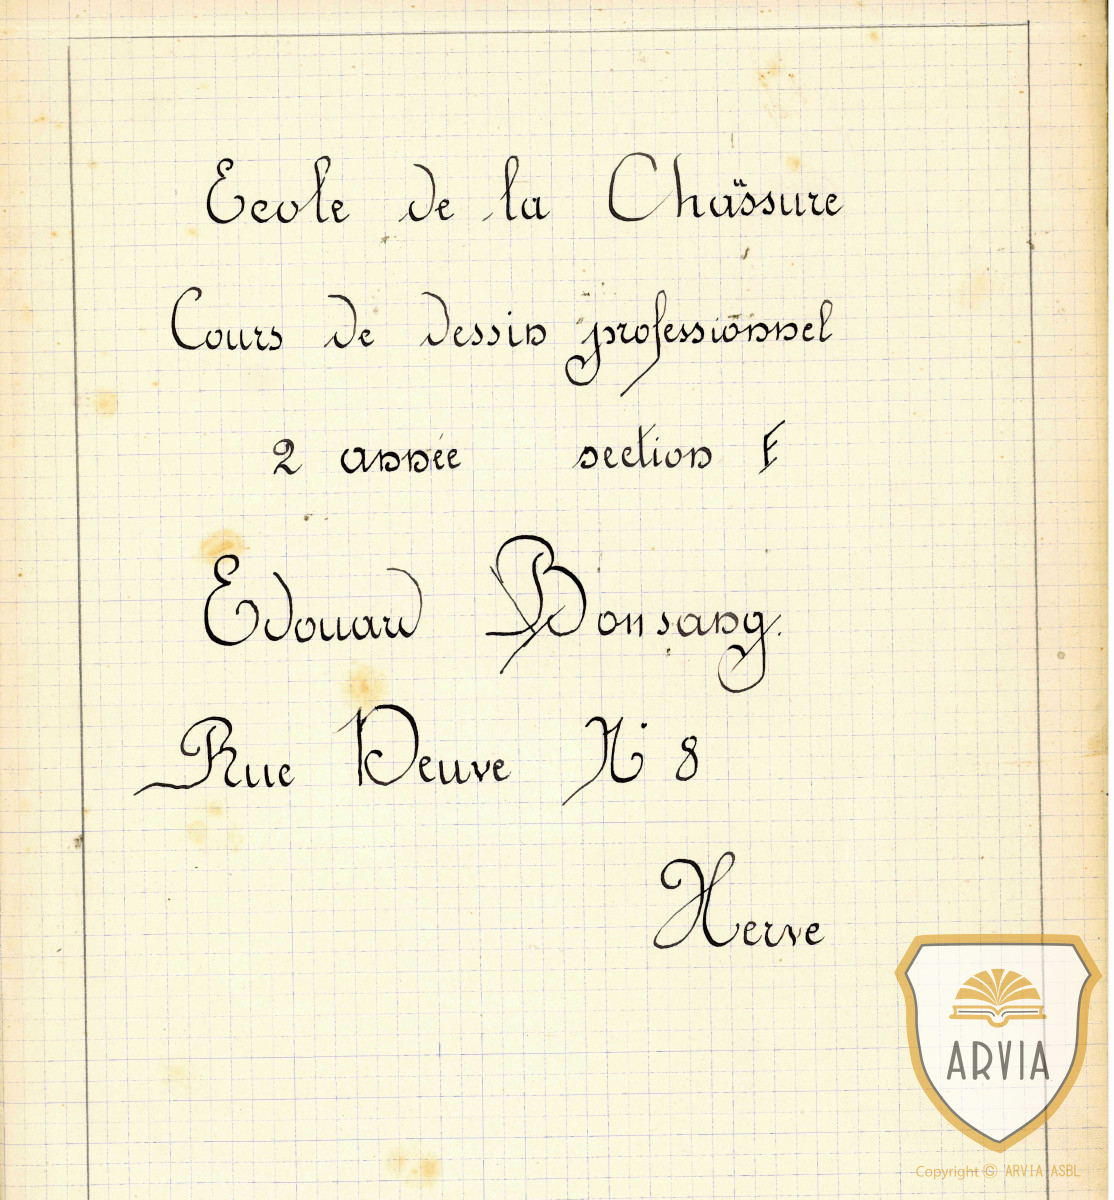 Ecole de la Chaüssure
Cours de dessin professionnel
2 année section F
Edouard Bonsang.
Rue Neuve N° 8
Herve
ARVIA
Copyright © ARVIA ASBL